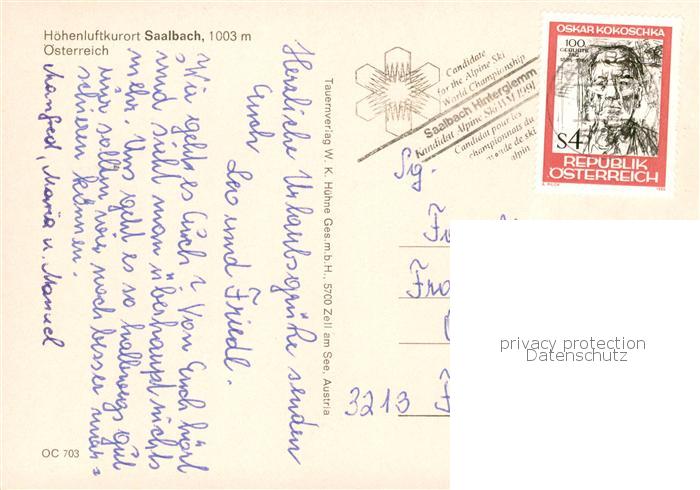 Höhenluftkurort Saalbach, 1003 m
Österreich
Herzliche Urlaubsgrüße senden
Euch
Leo und Friedl.
Wie geht es Euch? Von Euch hört
und sieht man überhaupt nichts
mehr. Uns geht es so halbwegs gut
nur sollten wir noch besser mar-
schieren können.
Manfred, Maria u. Manuel
OC 703
Tauernverlag W. K. Hühne Ges.m.b.H., 5700 Zell am See, Austria
Candidate
for the Alpine Ski
World Championship
Saalbach Hinterglemm
Kandidat Alpine Ski WM 1991
Candidat pour les
championnats du
monde de ski
alpin
OSKAR KOKOSCHKA
100.
GEBURTS
TAG
S4
REPUBLIK
ÖSTERREICH
Sg.
Fa
Fra
3213 F
privacy protection
Datenschutz